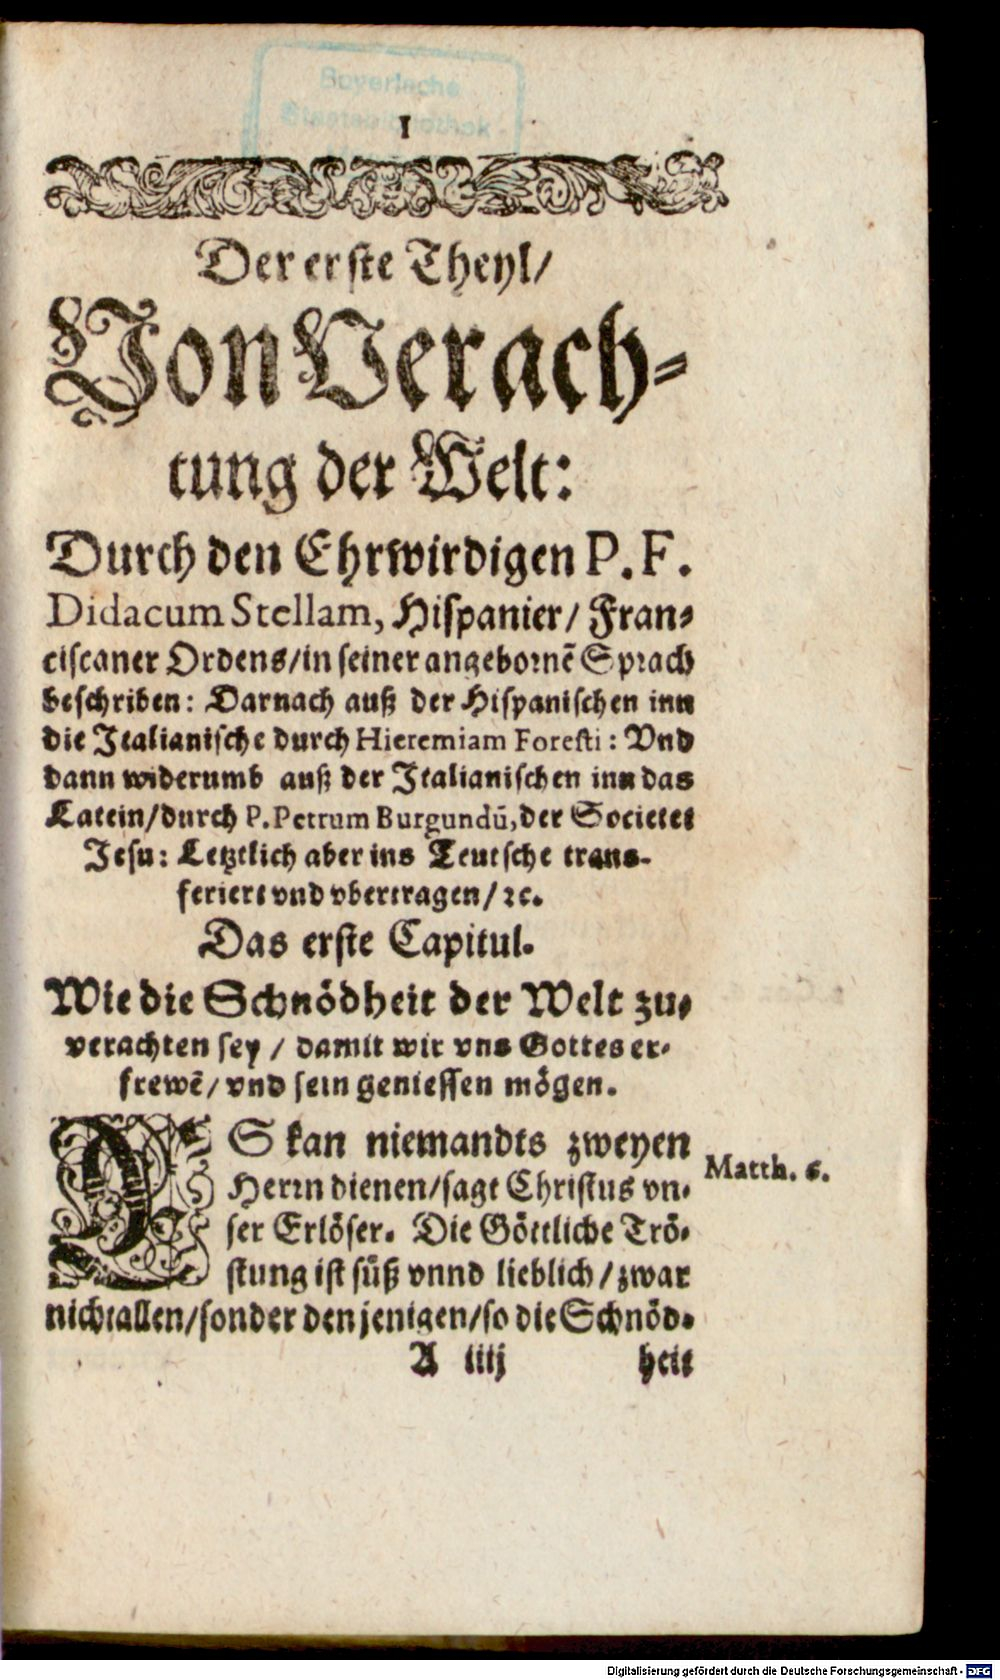 Bayerische
Staatsbibliothek
1
Der erste Theyl/
Von Verach-
tung der Welt:
Durch den Ehrwirdigen P. F.
Didacum Stellam, Hispanier/ Fran-
ciscaner Ordens/in seiner angebornẽ Sprach
beschriben: Darnach auß der Hispanischen inn
die Italianische durch Hieremiam Foresti: Vnd
dann widerumb auß der Italianischen inn das
Latein/durch P. Petrum Burgundũ, der Societet
Jesu: Letztlich aber ins Teutsche trans-
feriert vnd vbertragen/ ꝛc.
Das erste Capitul.
Wie die Schnödheit der Welt zu-
verachten sey / damit wir vns Gottes er-
frewẽ/ vnd sein geniessen mögen.
ES kan niemandts zweyen
Herrn dienen/sagt Christus vn-
ser Erlöser. Die Göttliche Trö-
stung ist süß vnnd lieblich/ zwar
nicht allen/sonder den jenigen/so die Schnöd-
Matth. 6.
A iiij heit
Digitalisierung gefördert durch die Deutsche Forschungsgemeinschaft - DFG